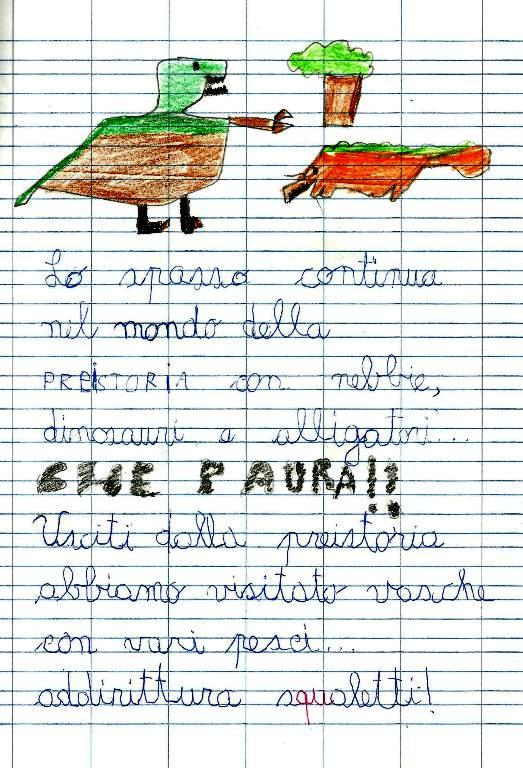 Lo spasso continua
nel mondo della
PREISTORIA con nebbie,
dinosauri e alligatori...
CHE PAURA!!
Usciti dalla preistoria
abbiamo visitato vasche
con vari pesci...
addirittura squaletti!